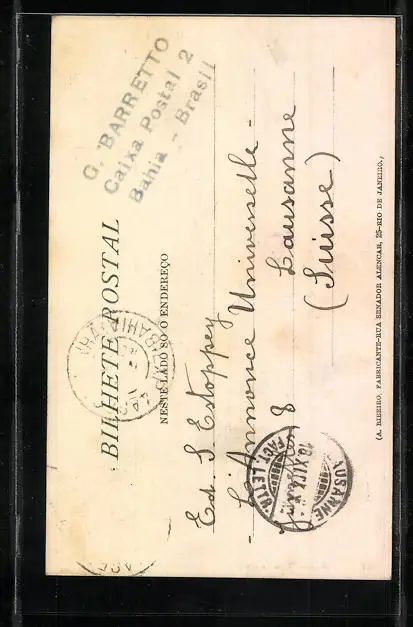 G. BARRETTO
Caixa Postal 2
Bahia - Brasil
BILHETE POSTAL
NESTE LADO SÓ O ENDEREÇO
Ed. S. Estoppey
- L'Annonce Universelle -
8
Lausanne
(Suisse)
(A. RIBEIRO, FABRICANTE-RUA SENADOR ALENCAR, 25-RIO DE JANEIRO.)